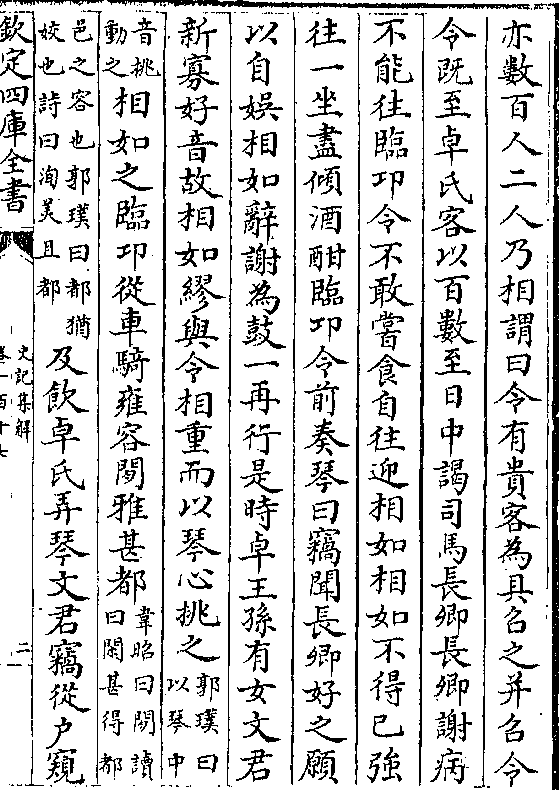 亦數百人二人乃相謂曰令有貴客為具召之并召令
令既至卓氏客以百數至日中謁司馬長卿長卿謝病
不能往臨邛令不敢嘗食自往迎相如相如不得已強
往一坐盡傾酒酣臨邛令前奏琴曰竊聞長卿好之願
以自娯相如辭謝為鼓一再行是時卓王孫有女文君
新寡好音故相如繆與令相重而以琴心挑之郭璞曰以琴中
音挑動之相如之臨邛從車騎雍容閒雅甚都韋昭曰閒讀曰閑甚得都
邑之容也郭璞曰都猶姣也詩曰洵美且都及飲卓氏弄琴文君竊從户窺
欽定四庫全書
史記集解
卷一百十七
二